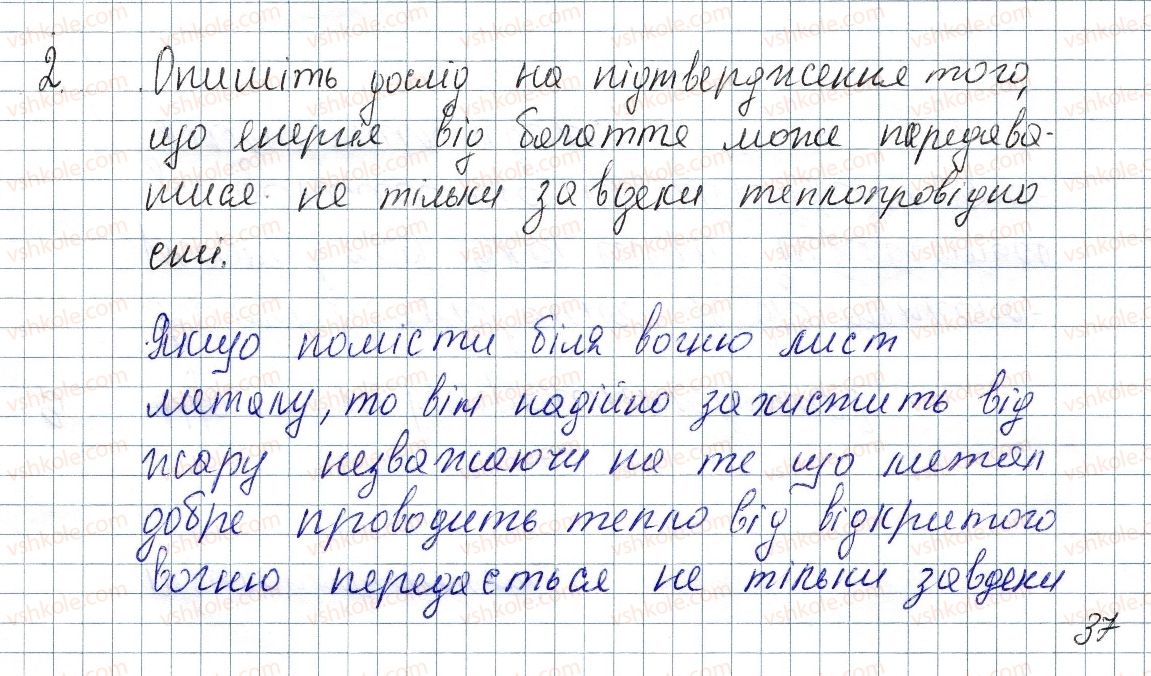 2. Опишіть дослід на підтвердження того,
що енергія від багаття може передава-
тися не тільки завдяки теплопровідно
сті.
Якщо помісти біля вогню лист
металу, то він надійно захистить від
жару незважаючи на те що метал
добре проводить тепло від відкритого
вогню передається не тільки завдяки
37